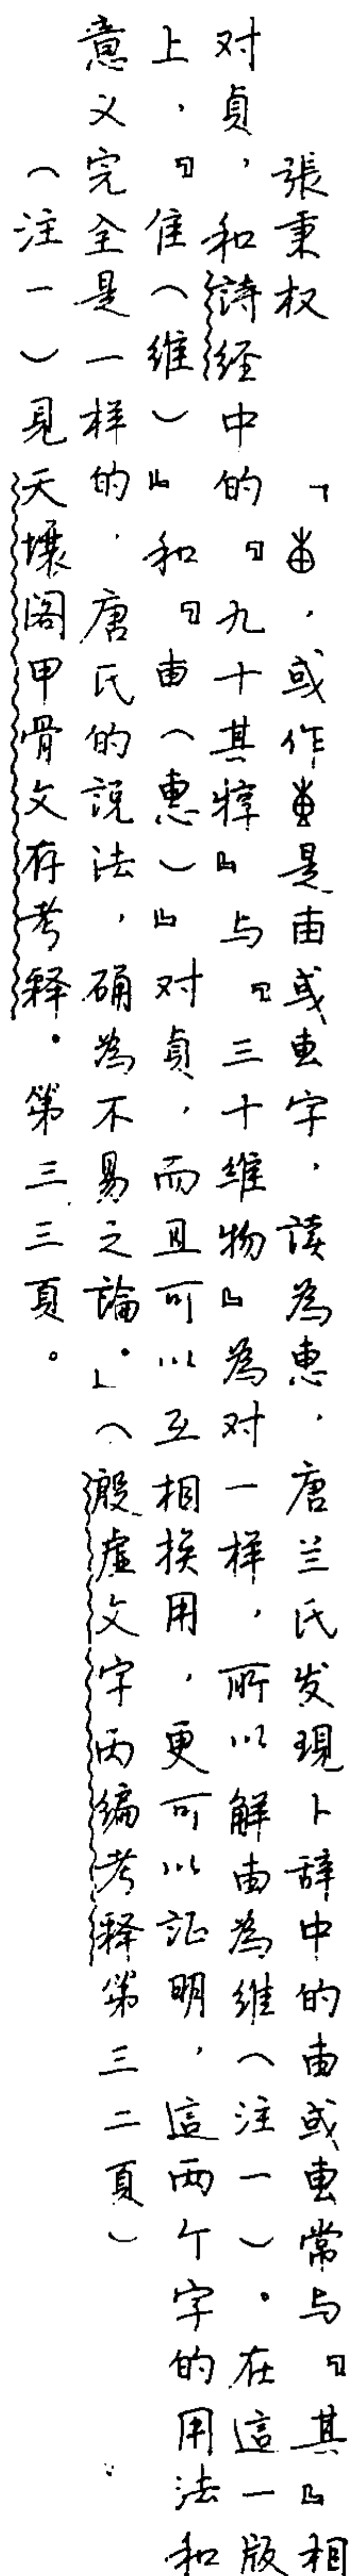 張秉权 「㞢，或作叀是甶或叀字，读為恵，唐兰氏发現卜辞中的甶或叀常与『其』相
对貞，和詩经中的『九十其犉』与『三十维物』為对一样，所以解甶為维（注一）。在這一版
上，『隹（维）』和『甶（恵）』对貞，而且可以互相换用，更可以証明，這两个字的用法和
意义完全是一样的，唐氏的說法，确為不易之論。」（殷虛文字丙编考释第三二頁）
（注一）見天壤阁甲骨文存考释。第三三頁。